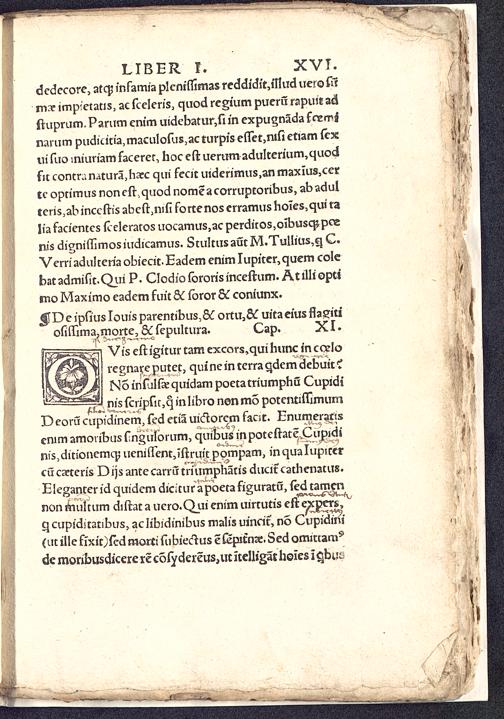 LIBER I. XVI.
dedecore, atq; infamia plenissimas reddidit, illud uero sūt
mæ impietatis, ac sceleris, quod regium puerū rapuit ad
stuprum. Parum enim uidebatur, si in expugnāda fœmi
narum pudicitia, maculosus, ac turpis esset, nisi etiam sex
ui suo iniuriam faceret, hoc est uerum adulterium, quod
fit contra naturā, hæc qui fecit uiderimus, an maxīus, cer
te optimus non est, quod nomē a corruptoribus, ab adul
teris, ab incestis abest, nisi forte nos erramus hoīes, qui ta
lia facientes sceleratos uocamus, ac perditos, oībusq; pœ
nis dignissimos iudicamus. Stultus aūt M. Tullius, q C.
Verri adulteria obiecit. Eadem enim Iupiter, quem cole
bat admisit. Qui P. Clodio sororis incestum. At illi opti
mo Maximo eadem fuit & soror & coniunx.
¶ De ipsius Iouis parentibus, & ortu, & uita eius flagiti
osissima, morte, & sepultura. Cap. XI.
O Vis est igitur tam excors, qui hunc in cœlo
regnare putet, qui ne in terra qdem debuit?
Nō insulse quidam poeta triumphū Cupidi
nis scripsit, q in libro non mō potentissimum
Deorū cupidinem, sed etiā uictorem facit. Enumeratis
enim amoribus singulorum, quibus in potestatē Cupidi
nis, ditionemq; uenissent, īstruit pompam, in qua Iupiter
cū cæteris Dijs ante currū triumphātis ducit̄ cathenatus.
Eleganter id quidem dicitur a poeta figuratū, sed tamen
non multum distat a uero. Qui enim uirtutis est expers,
q cupiditatibus, ac libidinibus malis uincit̄, nō Cupidini
(ut ille fīxit) sed morti subiectus ē sēpit̄næ. Sed omittamꝰ
de moribus dicere rē cōsyderēus, ut ītelligāt hoīes ī qbus